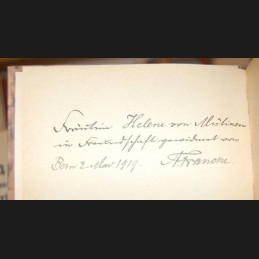 Fräulein Helene von Mülinen
in Freundschaft gewidmet von
Bern 2. Mai 1919. AFrancke